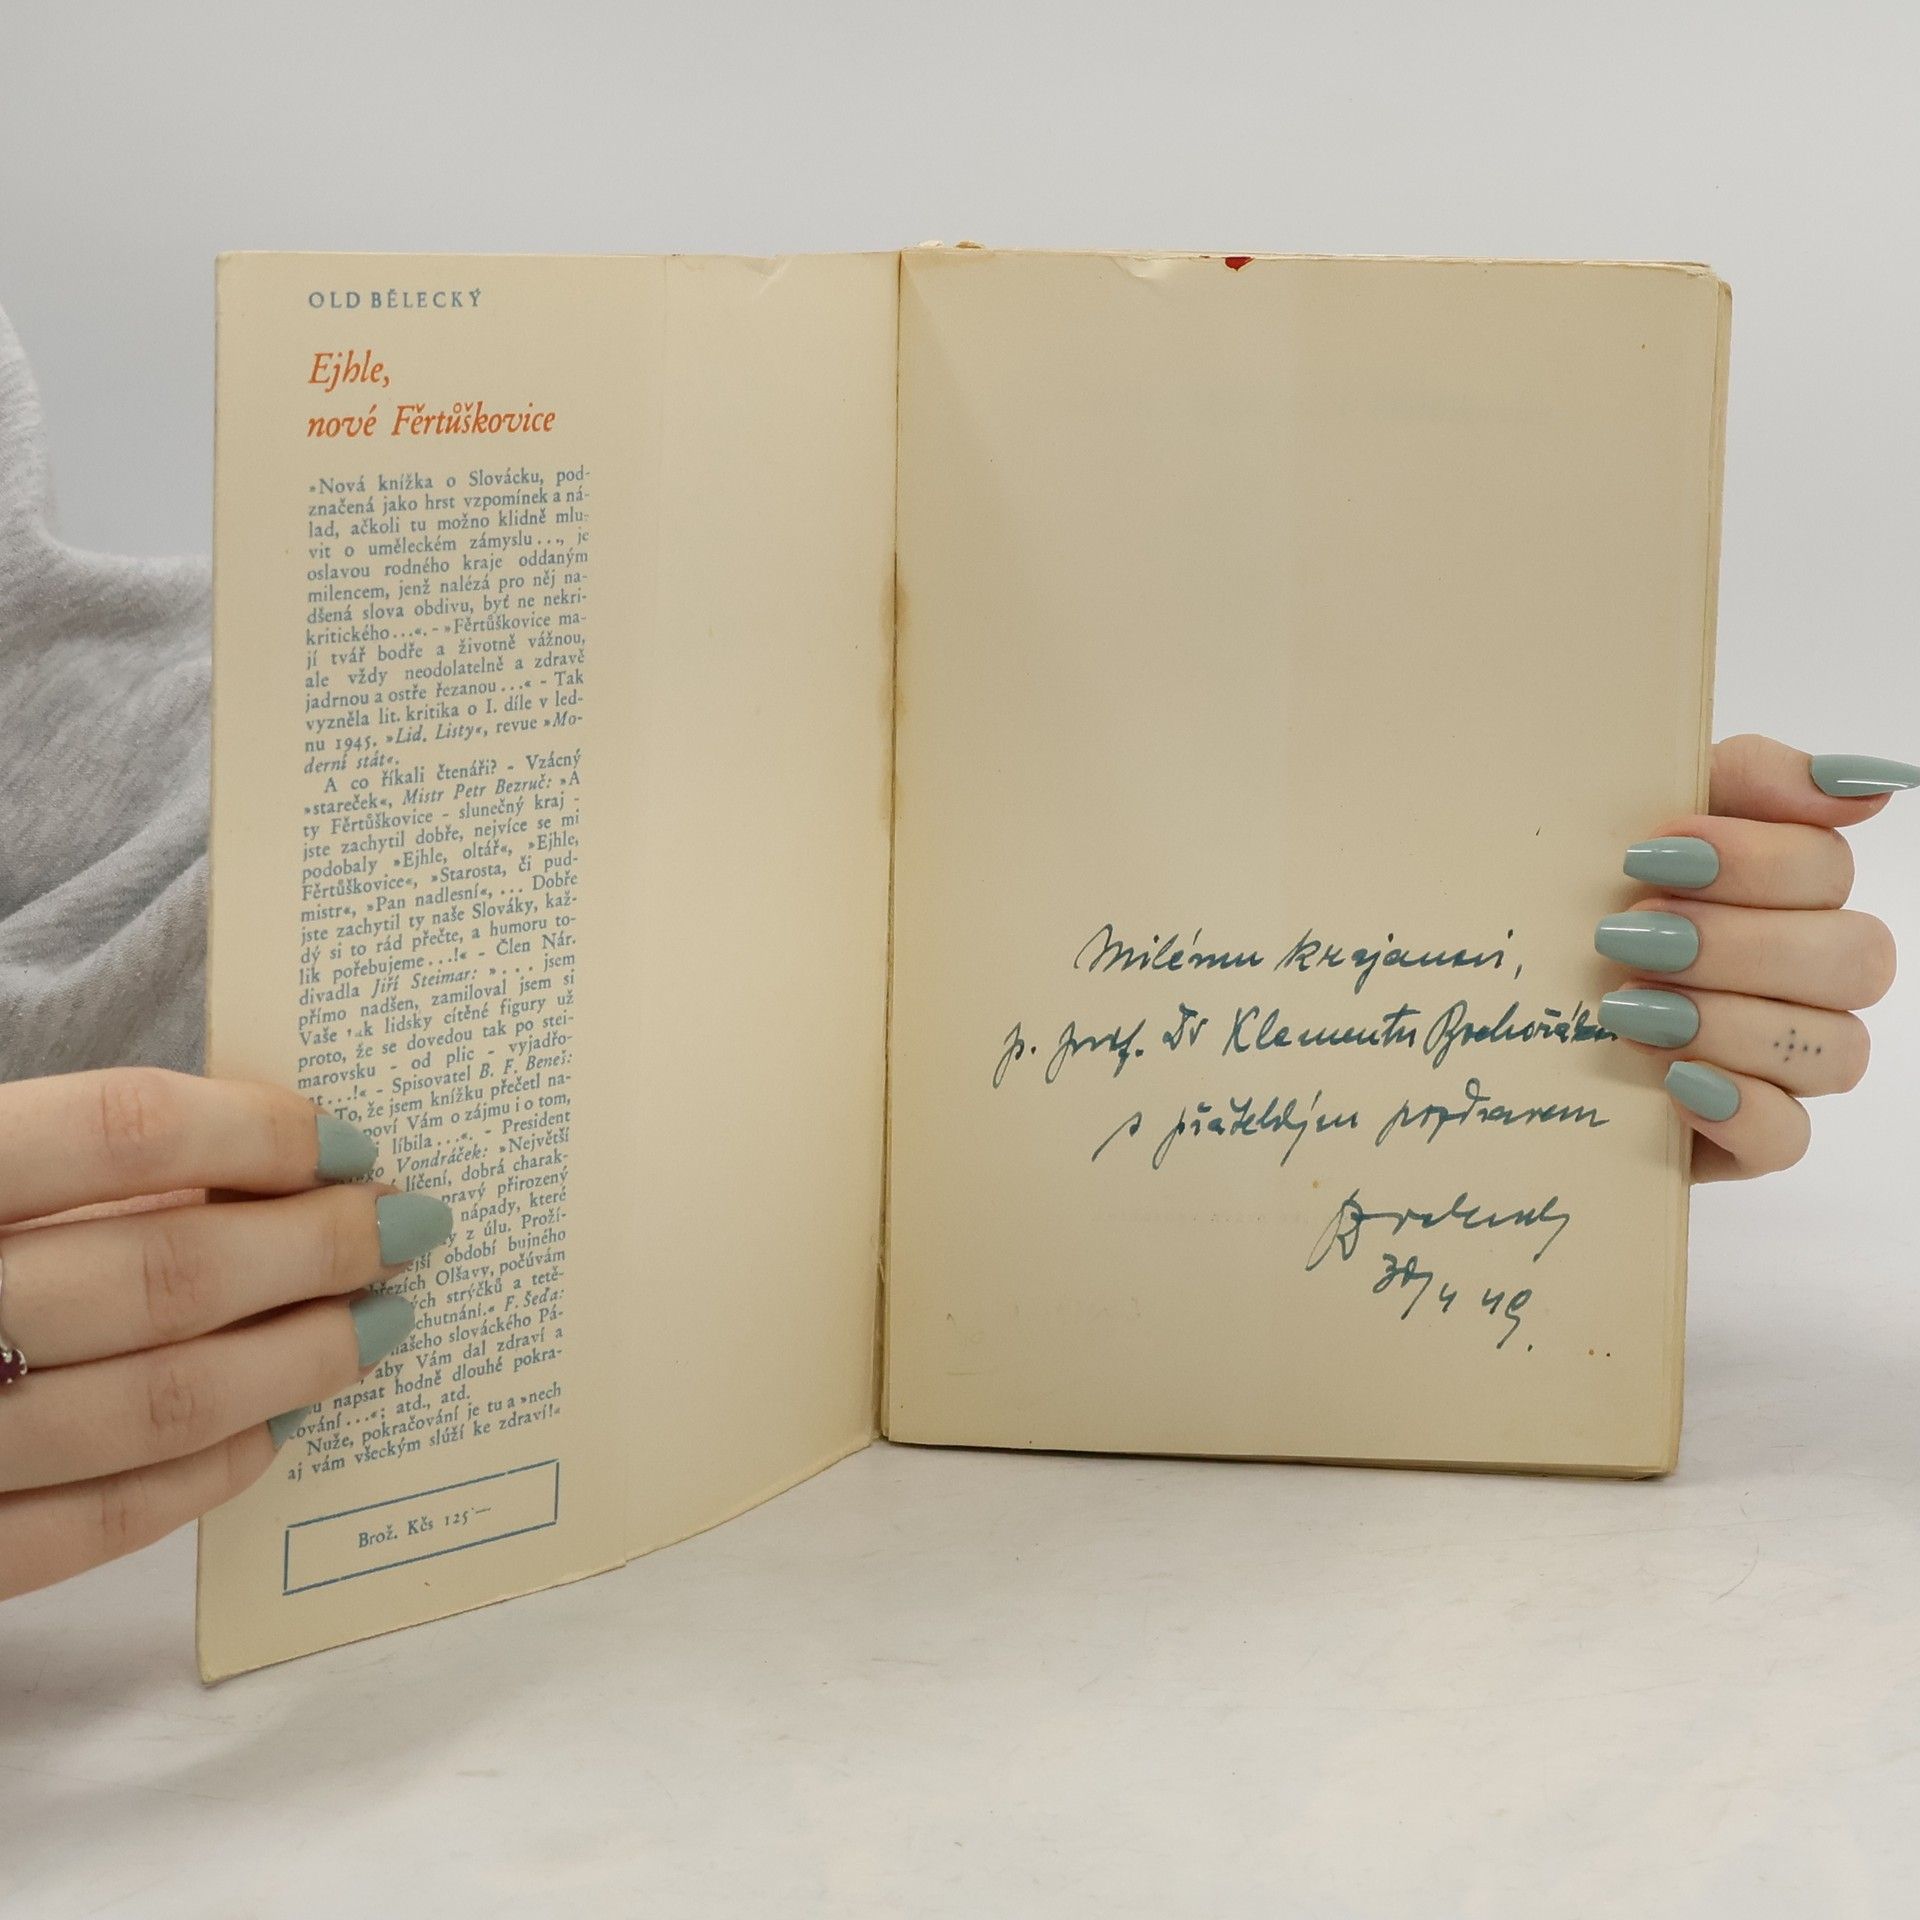 OLD BĚLECKÝ
Ejhle,
nové Fěrtůškovice
»Nová knížka o Slovácku, pod-
značená jako hrst vzpomínek a ná-
lad, ačkoli tu možno klidně mlu-
vit o uměleckém zámyslu..., je
oslavou rodného kraje oddaným
milencem, jenž nalézá pro něj na-
dšená slova obdivu, byť ne nekri-
kritického...«. - »Fěrtůškovice ma-
jí tvář bodře a životně vážnou,
ale vždy neodolatelně a zdravě
jadrnou a ostře řezanou...« - Tak
vyzněla lit. kritika o I. díle v led-
nu 1945. »Lid. Listy«, revue »Mo-
derní stát«.
A co říkali čtenáři? - Vzácný
»stareček«, Mistr Petr Bezruč: »A
ty Fěrtůškovice - slunečný kraj -
jste zachytil dobře, nejvíce se mi
podobaly »Ejhle, oltář«, »Ejhle,
Fěrtůškovice«, »Starosta, či pud-
mistr«, »Pan nadlesní«, ... Dobře
jste zachytil ty naše Slováky, kaž-
dý si to rád přečte, a humoru to-
lik pořebujeme...!« - Člen Nár.
divadla Jiří Steimar: »... jsem
přímo nadšen, zamiloval jsem si
Vaše tak lidsky cítěné figury už
proto, že se dovedou tak po stei-
marovsku - od plic - vyjadřo-
at...!« - Spisovatel B. F. Beneš:
To, že jsem knížku přečetl na-
poví Vám o zájmu i o tom,
i líbila...«. - President
Vondráček: »Největší
líčení, dobrá charak-
pravý přirozený
nápady, které
y z úlu. Proží-
ejší období bujného
březích Olšavy, počúvám
ých strýčků a tetě-
chutnání.« F. Šeďa:
našeho slováckého Pá-
aby Vám dal zdraví a
u napsat hodně dlouhé pokra-
cování...«; atd., atd.
Nuže, pokračování je tu a »nech
aj vám všeckým slúží ke zdraví!«
Brož. Kčs 125·—
Milému krajanovi,
p. prof. Dr Klementu Bochořáko
s přátelským pozdravem
30/4 49.